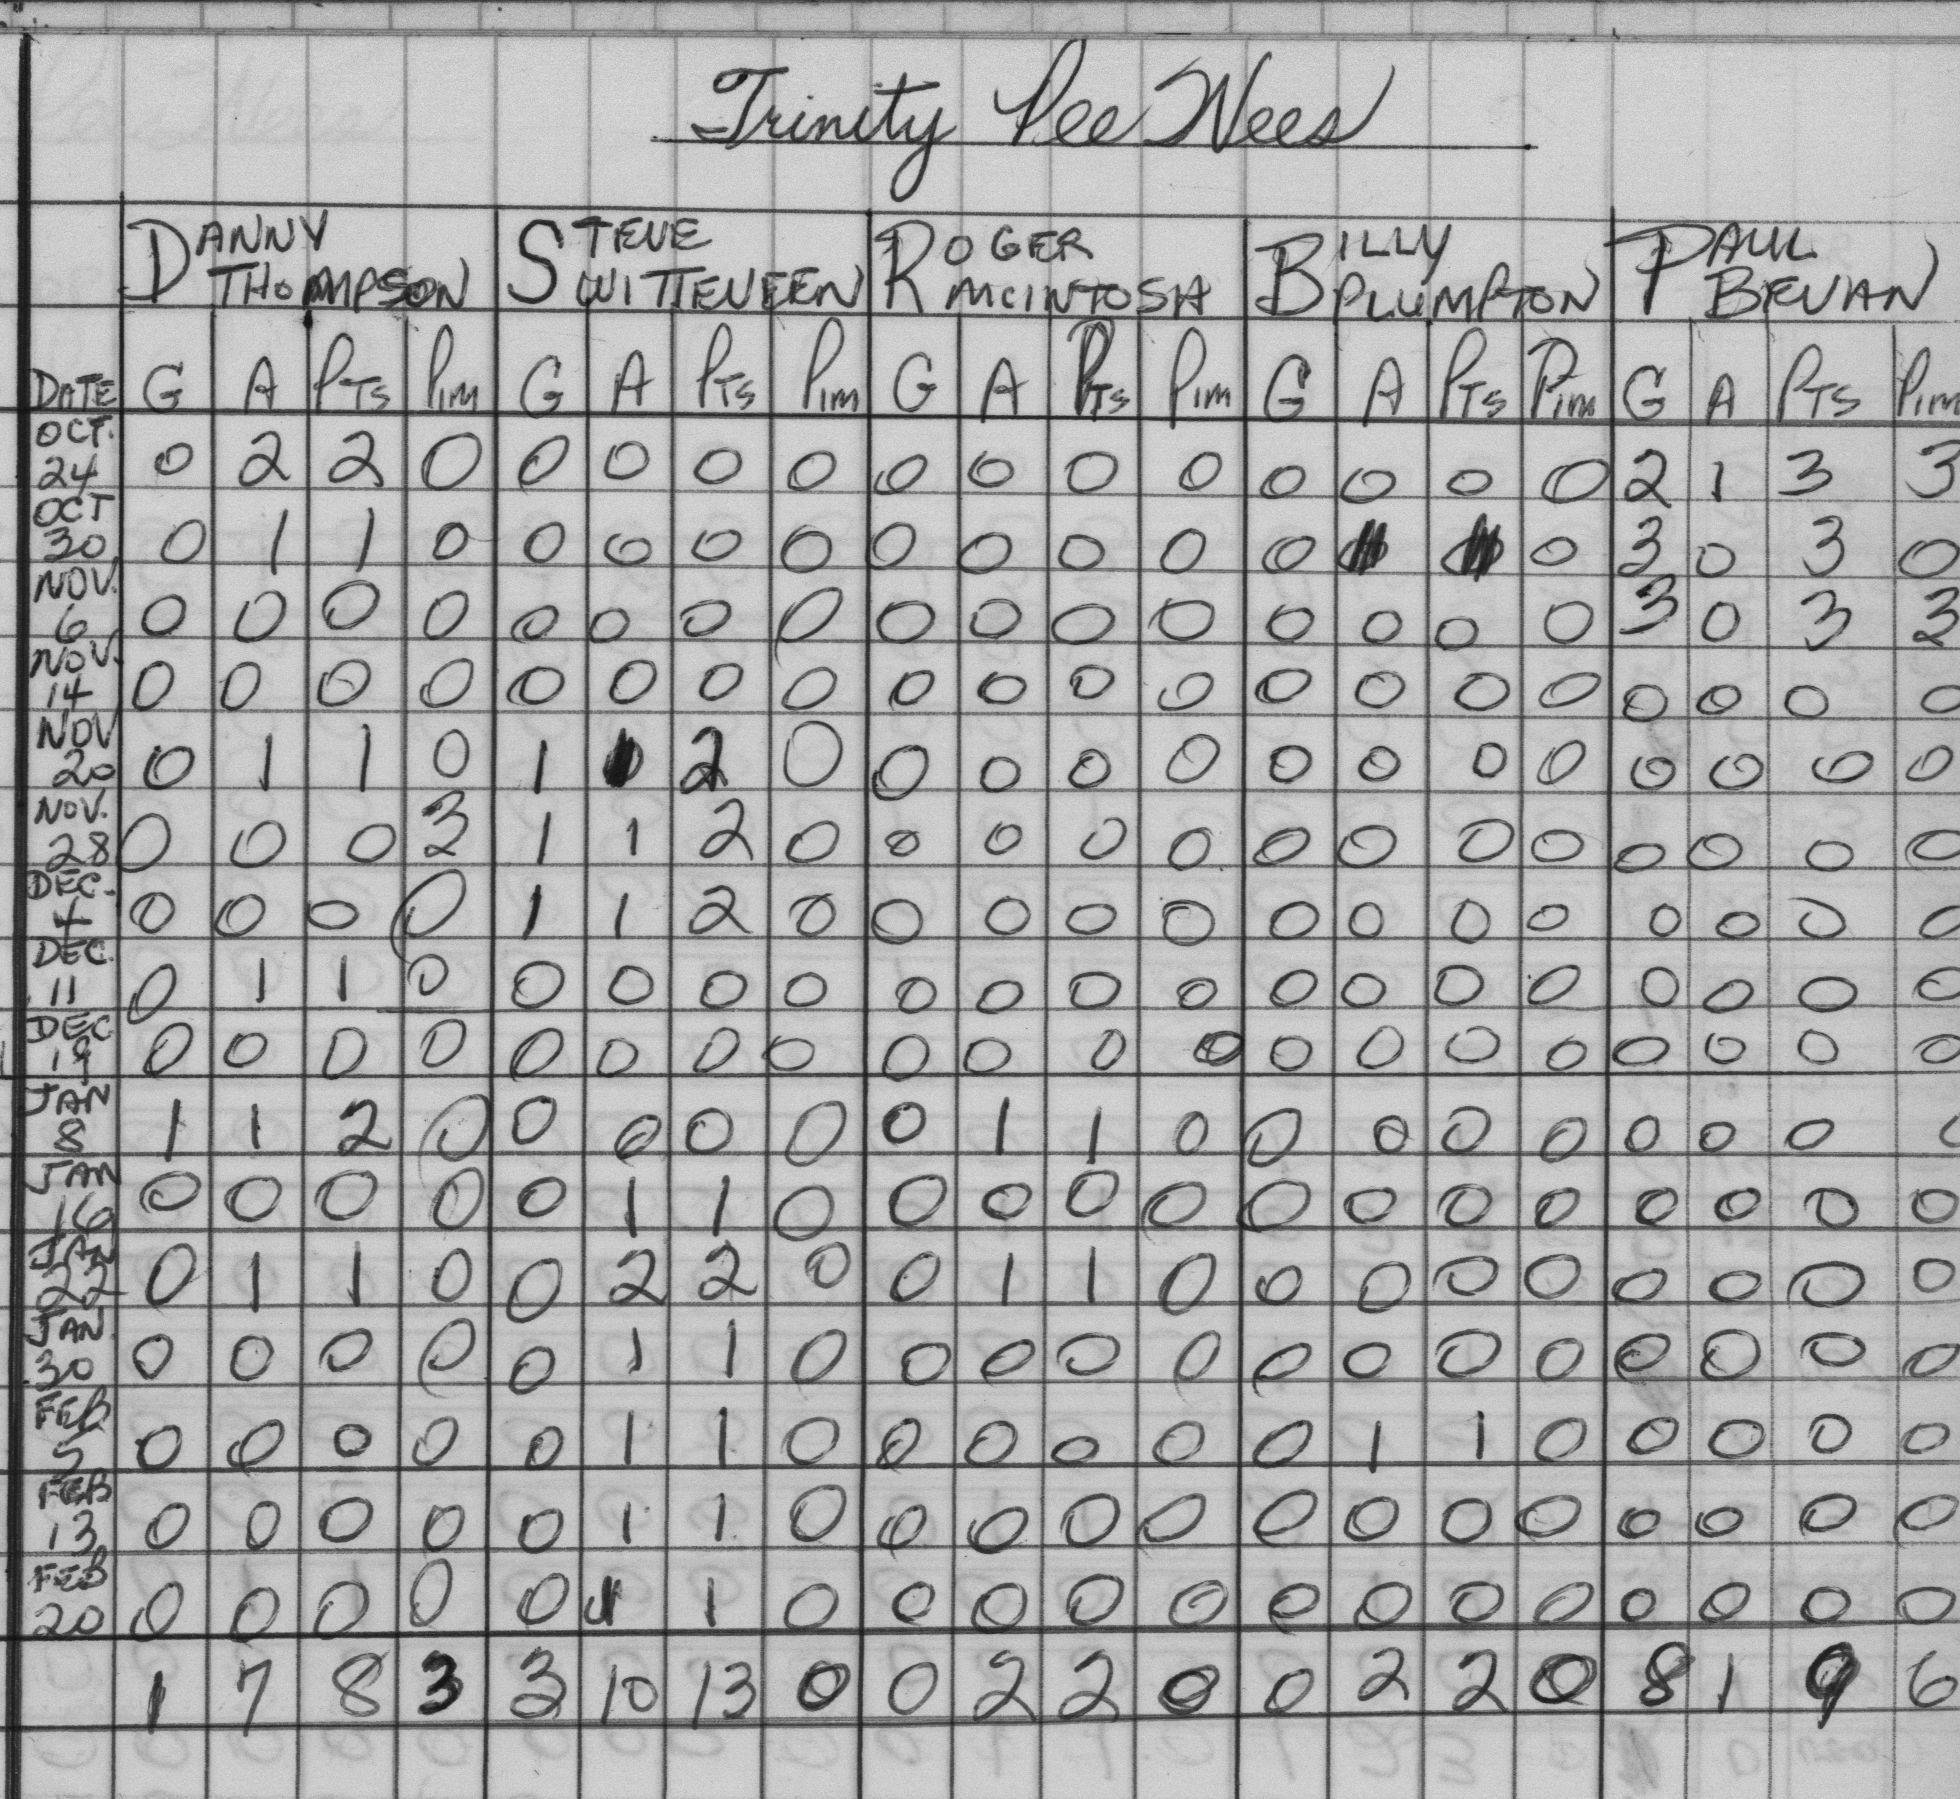 Trinity Pee Wees
DANNY THOMPSON STEVE WITTEVEEN ROGER MCINTOSH BILLY PLUMPTON PAUL BEVAN
DATE G A PTS PIM G A PTS PIM G A PTS PIM G A PTS PIM G A PTS PIM
OCT. 24 0 2 2 0 0 0 0 0 0 0 0 0 0 0 0 0 2 1 3 3
OCT 30 0 1 1 0 0 0 0 0 0 0 0 0 0 0 3 0 3 0
NOV. 6 0 0 0 0 0 0 0 0 0 0 0 0 0 0 0 0 3 0 3 3
NOV. 14 0 0 0 0 0 0 0 0 0 0 0 0 0 0 0 0 0 0 0 0
NOV 20 0 1 1 0 1 1 2 0 0 0 0 0 0 0 0 0 0 0 0 0
NOV. 28 0 0 0 3 1 1 2 0 0 0 0 0 0 0 0 0 0 0 0 0
DEC. 4 0 0 0 0 1 1 2 0 0 0 0 0 0 0 0 0 0 0 0 0
DEC. 11 0 1 1 0 0 0 0 0 0 0 0 0 0 0 0 0 0 0 0 0
DEC 19 0 0 0 0 0 0 0 0 0 0 0 0 0 0 0 0 0 0 0 0
JAN 8 1 1 2 0 0 0 0 0 0 1 1 0 0 0 0 0 0 0 0 0
JAN 16 0 0 0 0 0 1 1 0 0 0 0 0 0 0 0 0 0 0 0 0
JAN 22 0 1 1 0 0 2 2 0 0 1 1 0 0 0 0 0 0 0 0 0
JAN. 30 0 0 0 0 0 1 1 0 0 0 0 0 0 0 0 0 0 0 0 0
FEB 5 0 0 0 0 0 1 1 0 0 0 0 0 0 1 1 0 0 0 0 0
FEB 13 0 0 0 0 0 1 1 0 0 0 0 0 0 0 0 0 0 0 0 0
FEB 20 0 0 0 0 0 1 1 0 0 0 0 0 0 0 0 0 0 0 0 0
1 7 8 3 3 10 13 0 0 2 2 0 0 2 2 0 8 1 9 6